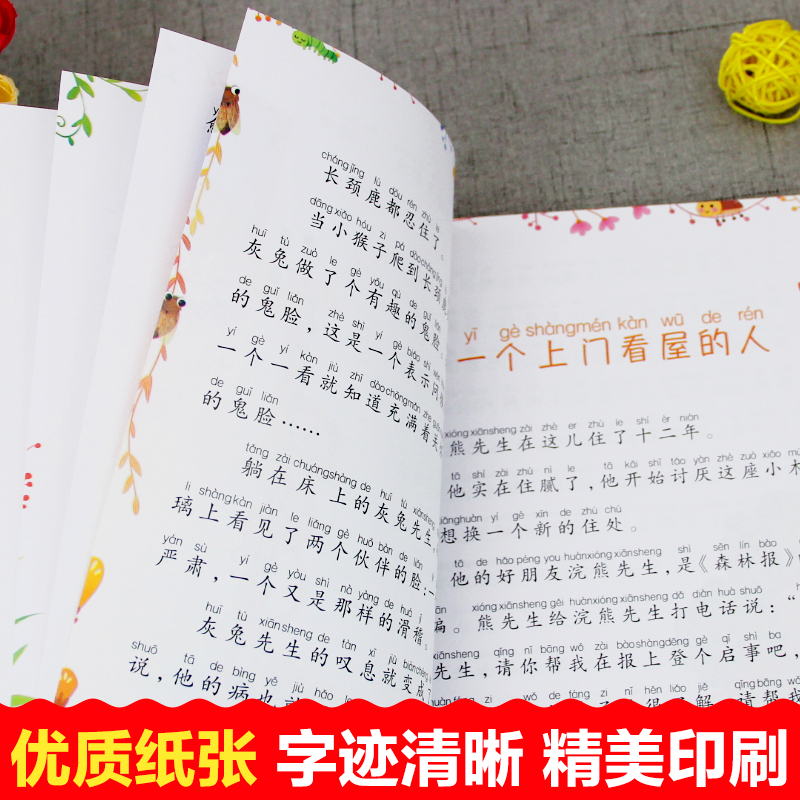 cháng jǐng lù dōu rěn zhù le
长颈鹿都忍住了。
dāng xiǎo hóu zi pá dào cháng jǐng
当小猴子爬到长颈鹿
huī tù zuò le gè yǒu qù de guǐ liǎn
灰兔做了个有趣的鬼脸。
de guǐ liǎn zhè shì yí gè biǎo shì wèn
的鬼脸，这是一个表示问
yí gè yí kàn jiù zhī dào chōng mǎn zhe guān
一个一看就知道充满着关
de guǐ liǎn
的鬼脸……
tǎng zài chuáng shàng de huī tù xiān sheng
躺在床上的灰兔先生，
li shàng kàn jiàn le liǎng gè huǒ bàn de liǎn
璃上看见了两个伙伴的脸：一
yán sù yí gè yòu shì nà yàng de huá jī
严肃，一个又是那样的滑稽。
huī tù xiān sheng de tàn xī jiù biàn chéng
灰兔先生的叹息就变成了
shuō tā de bìng yě jiù hǎo le
说，他的病也就
yī gè shàng mén kàn wū de rén
一个上门看屋的人
xióng xiān sheng zài zhè er zhù le shí èr nián
熊先生在这儿住了十二年。
tā shí zài zhù nì le tā kāi shǐ tǎo yàn zhè zuò xiǎo mù
他实在住腻了，他开始讨厌这座小木
xiǎng huàn yí gè xīn de zhù chù
想换一个新的住处。
tā de hǎo péng you huàn xióng xiān sheng shì sēn lín bào
他的好朋友浣熊先生，是《森林报》
xióng xiān sheng gěi huàn xióng xiān sheng dǎ diàn huà shuō
编。熊先生给浣熊先生打电话说：“
xiān sheng qǐng nǐ bāng wǒ zài bào shàng dēng gè qǐ shì ba
先生，请你帮我在报上登个启事吧，
wǒ de fáng zi nǐ hěn liǎo jiě qǐng bāng wǒ
很了解 请帮我
优质纸张 字迹清晰 精美印刷